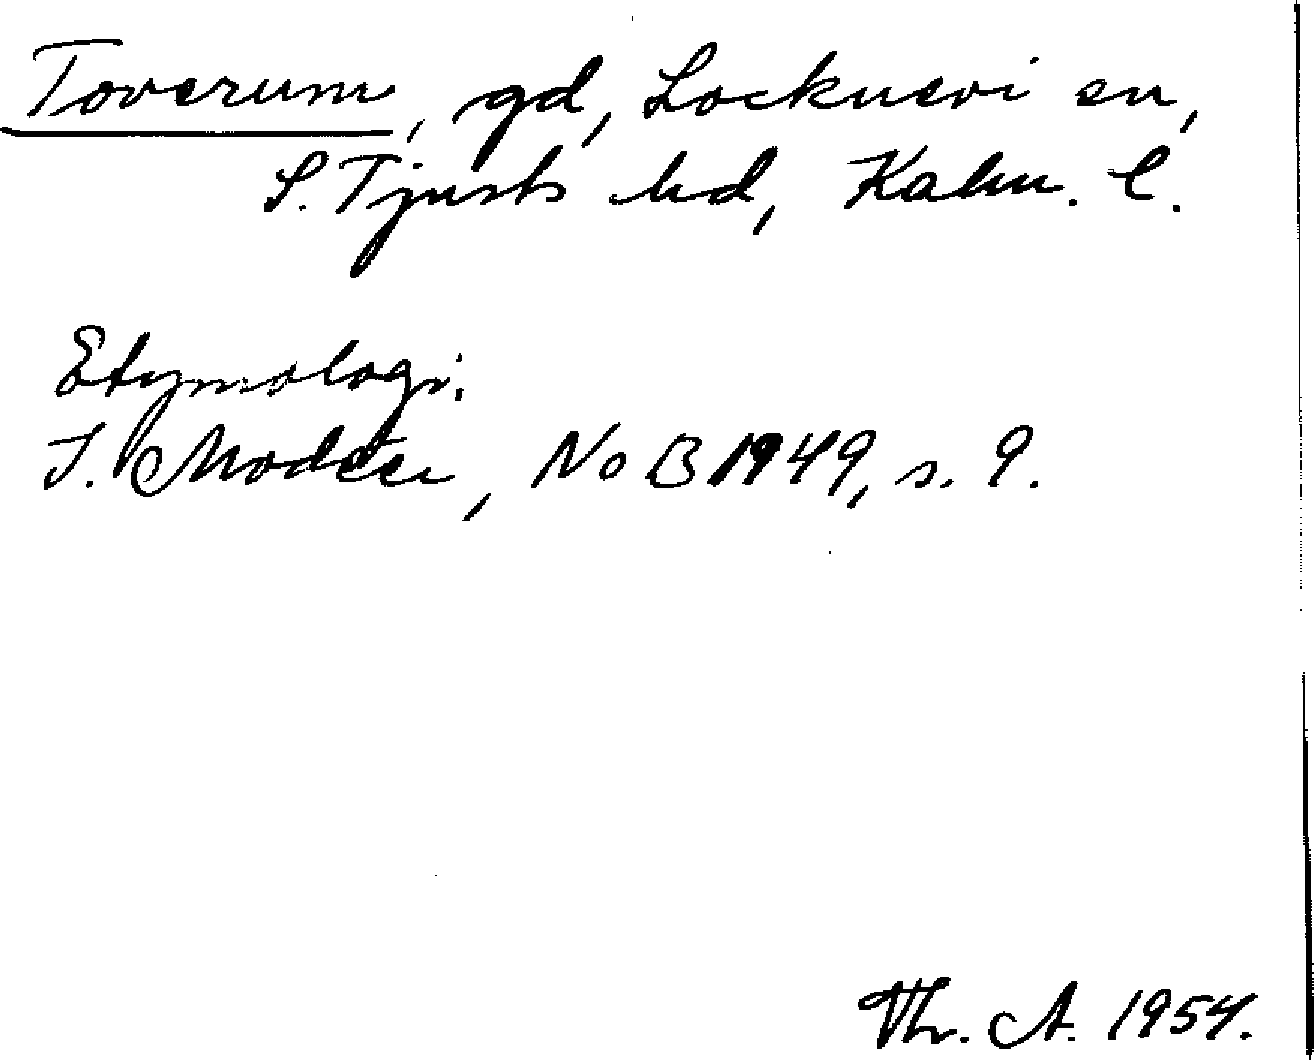 Toverum, gd, Locknevi sn,
S. Tjusts hd, Kalm. l.
Etymologi.
I. Modéer, NoB 1949, s. 9.
Th. A. 1954.